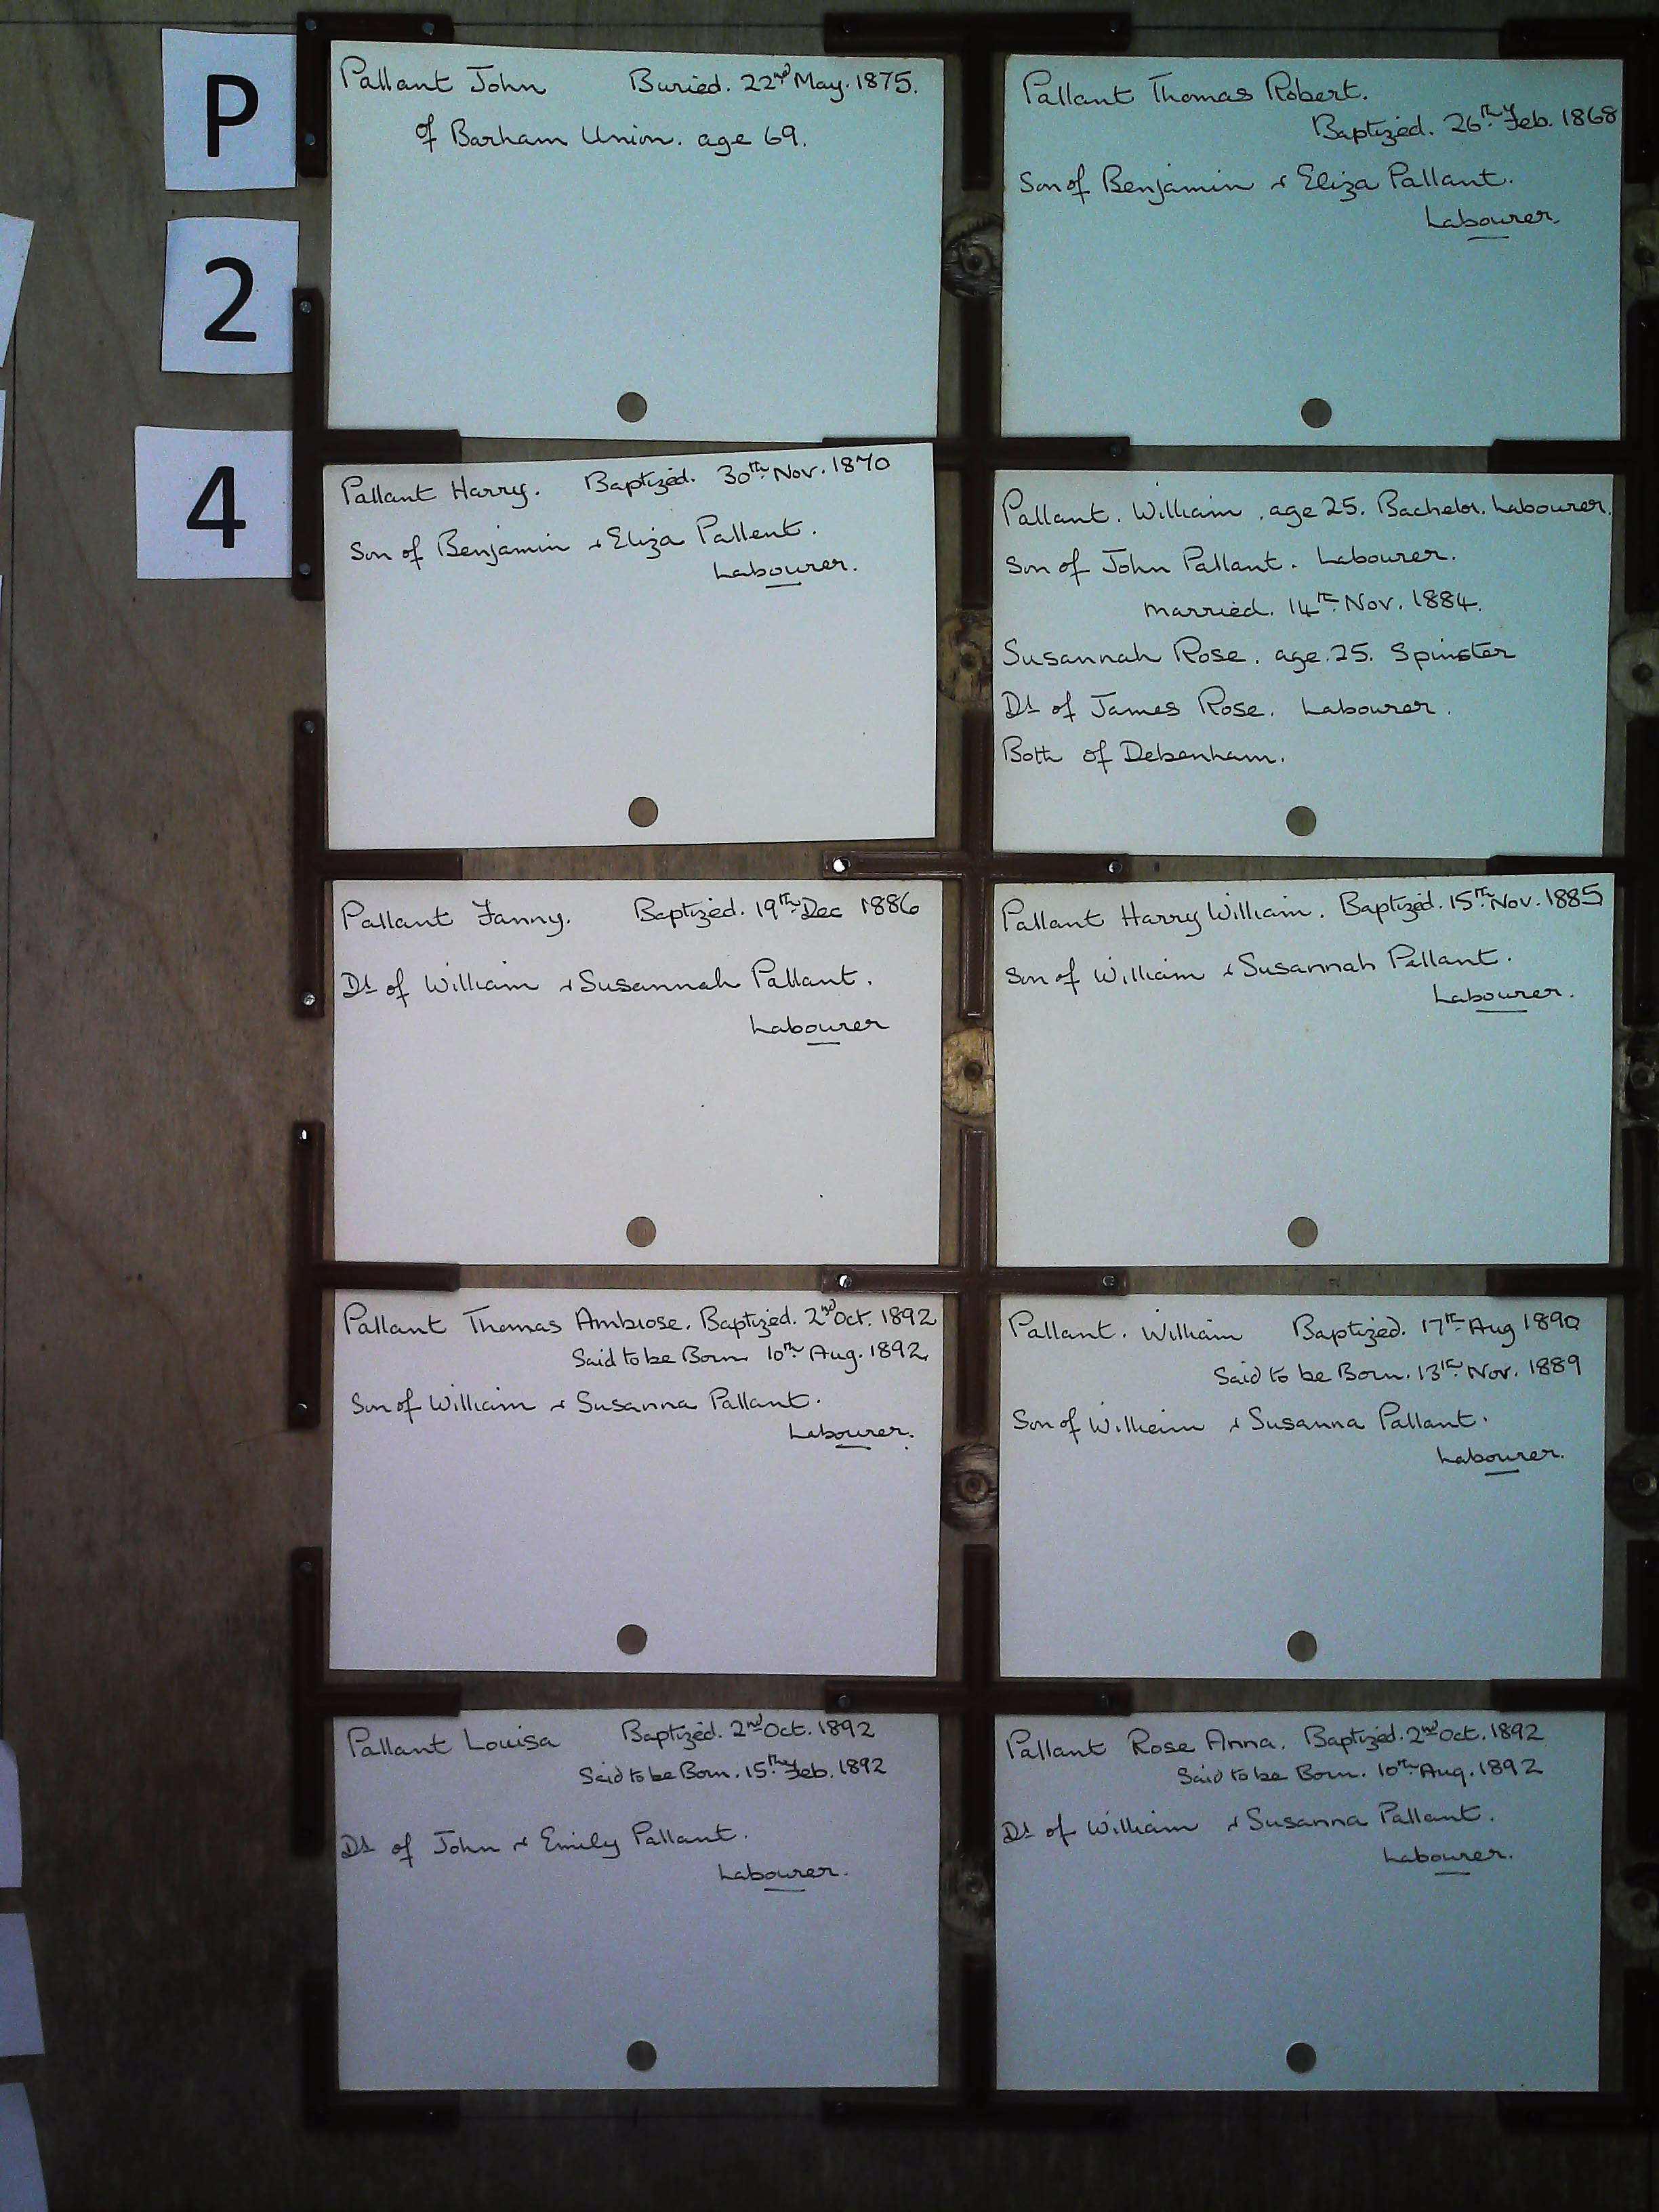 P
2
4
Pallant John Buried. 22nd May. 1875.
of Barham Union. age 69.
Pallant Thomas Robert.
Baptized. 26th Feb. 1868
Son of Benjamin & Eliza Pallant.
Labourer.
Pallant Harry. Baptized. 30th Nov. 1870
Son of Benjamin & Eliza Pallent.
Labourer.
Pallant. William. age 25. Bachelor. Labourer.
Son of John Pallant. Labourer.
married. 14th Nov. 1884.
Susannah Rose. age. 25. Spinster
Dt of James Rose. Labourer.
Both of Debenham.
Pallant Fanny. Baptized. 19th Dec 1886
Dt of William & Susannah Pallant.
Labourer
Pallant Harry William. Baptized. 15th Nov. 1885
Son of William & Susannah Pallant.
Labourer.
Pallant Thomas Ambrose. Baptized. 2nd Oct. 1892
Said to be Born 10th Aug. 1892.
Son of William & Susanna Pallant.
Labourer.
Pallant. William Baptized. 17th Aug 1890
Said to be Born. 13th Nov. 1889
Son of William & Susanna Pallant.
Labourer.
Pallant Louisa Baptized. 2nd Oct. 1892
Said to be Born. 15th Feb. 1892
Dt of John & Emily Pallant.
Labourer.
Pallant Rose Anna. Baptized. 2nd Oct. 1892
Said to be Born. 10th Aug. 1892
Dt of William & Susanna Pallant.
Labourer.